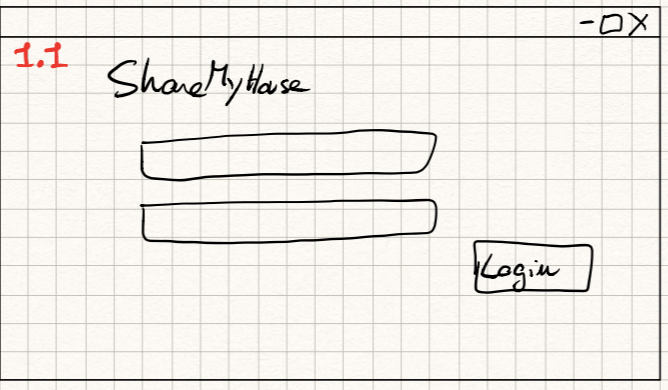 -□X
1.1
ShareMyHouse
Login